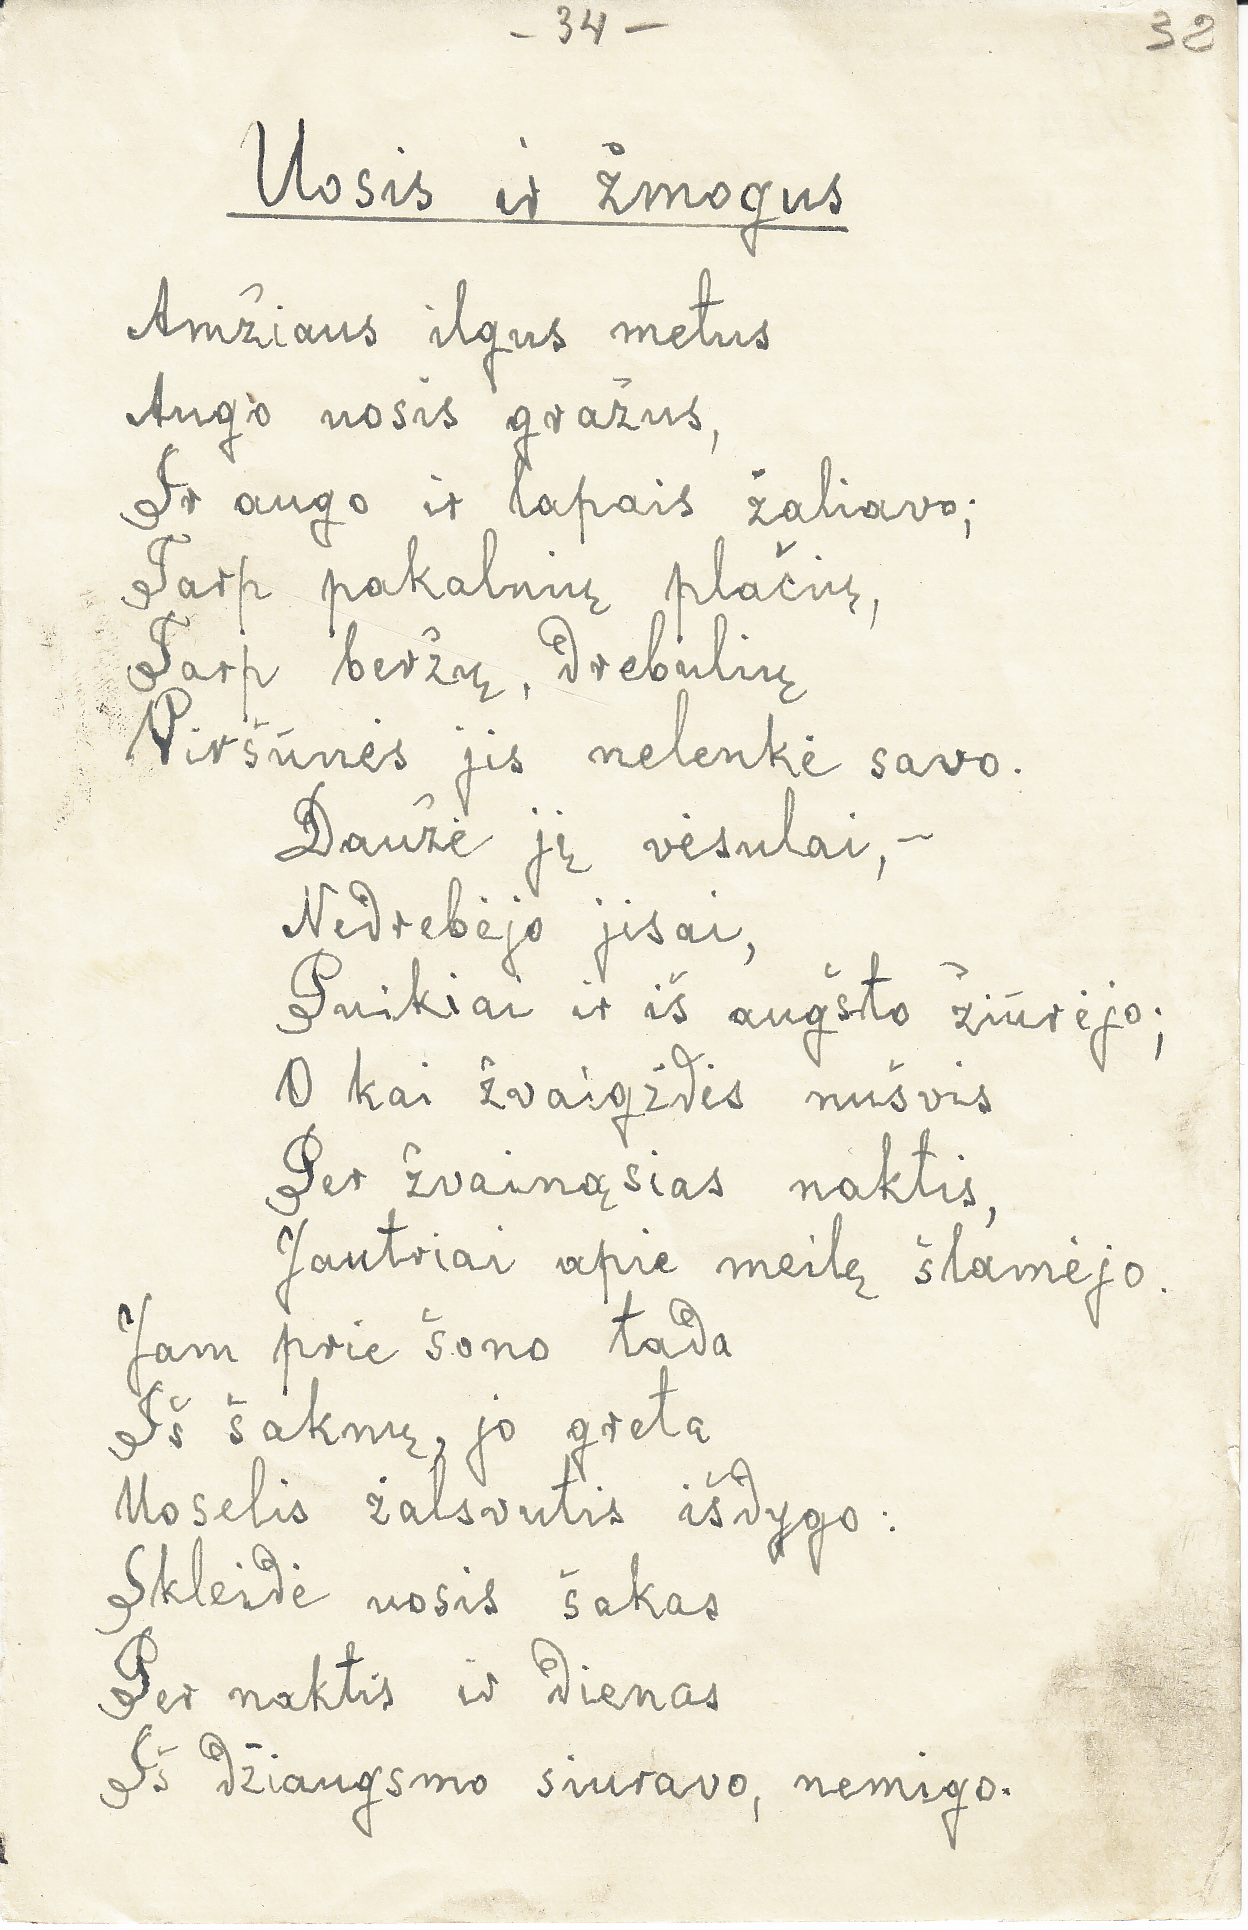 - 34 -
32
Uosis ir žmogus
Amžiaus ilgus metus
Augo uosis gražus,
Ir augo ir lapais žaliavo;
Tarp pakalnių plačių,
Tarp beržų, drebulių
Viršūnės jis nelenkė savo.
Daužė jį vėsulai, –
Nedrebėjo jisai,
Puikiai ir iš augšto žiūrėjo;
O kai žvaigždės nušvis
Per žvainąsias naktis,
Jautriai apie meilę šlamėjo.
Jam prie šono tada
Iš šaknų, jo greta
Uoselis žalsvutis išdygo:
Skleidė uosis šakas
Per naktis ir dienas
Iš džiaugsmo siuravo, nemigo.